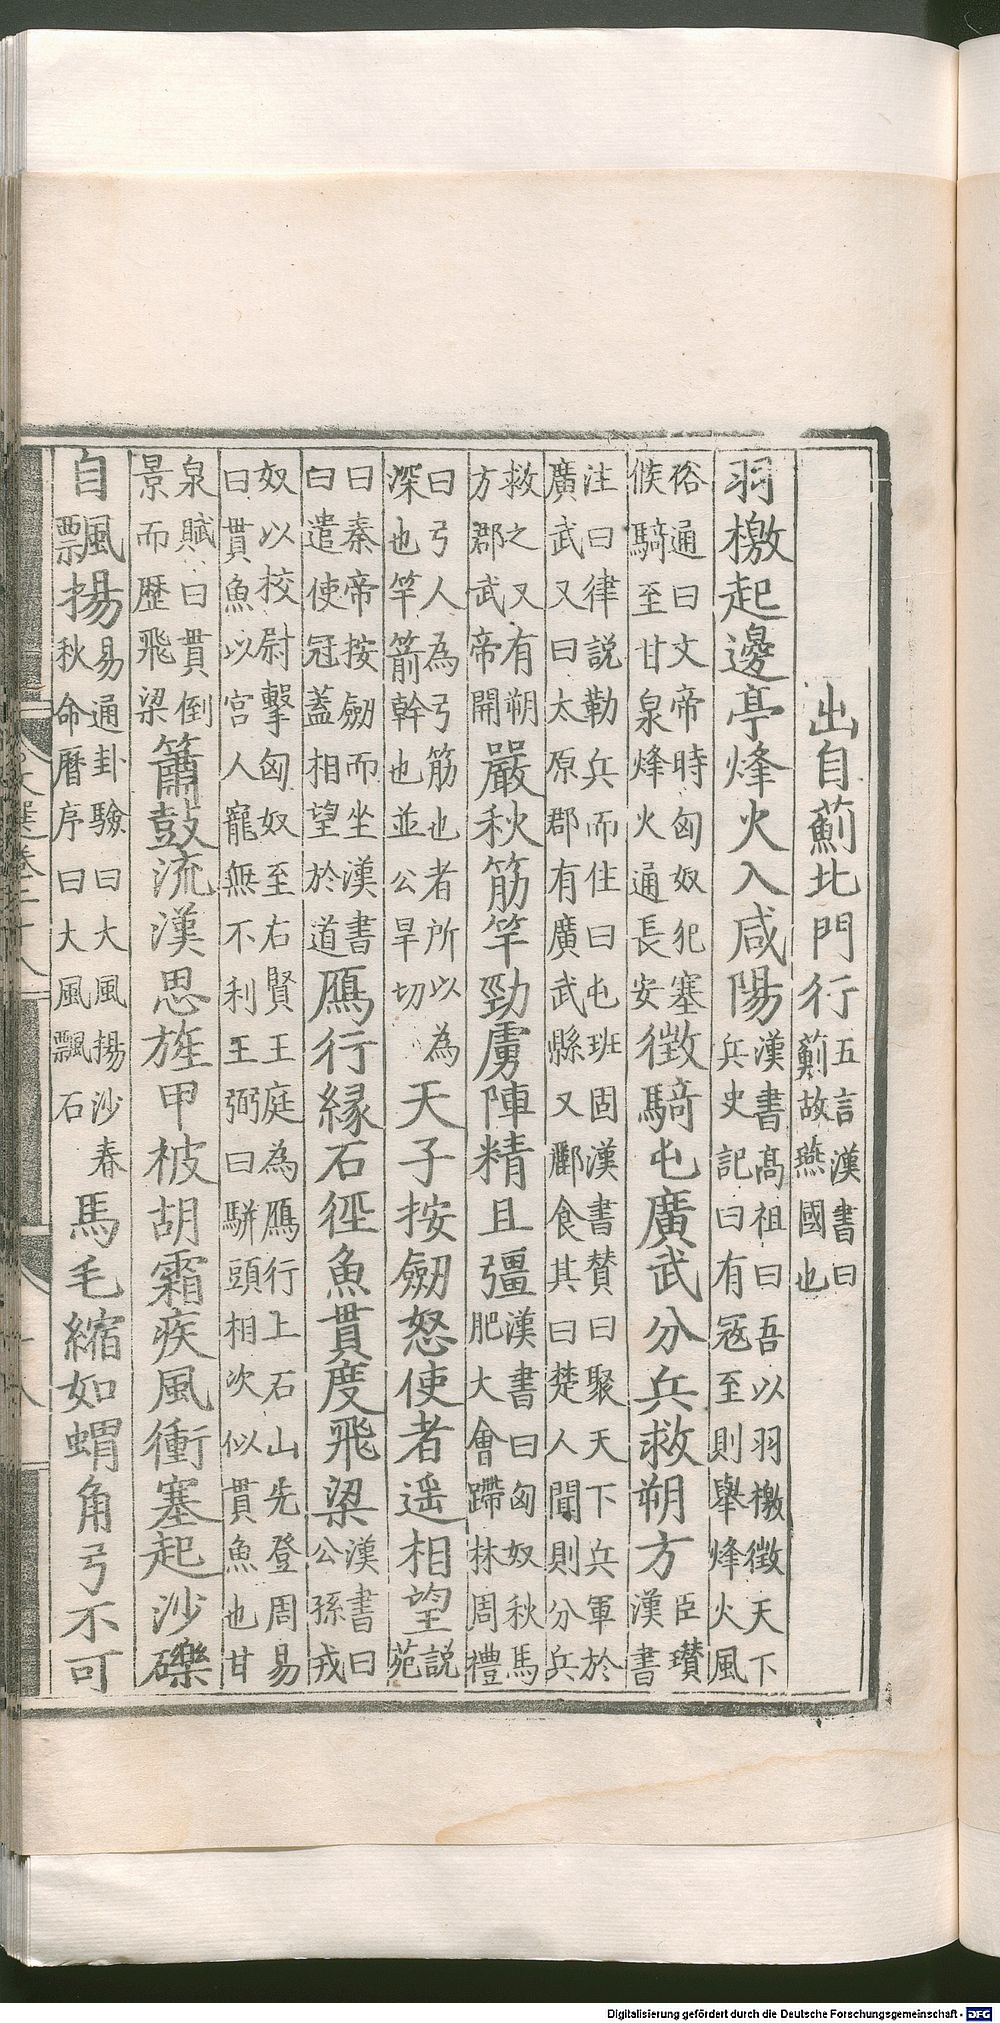 出自薊北門行五言漢書曰薊故燕國也
羽檄起邊亭烽火入咸陽漢書高祖曰吾以羽檄徵天下兵史記曰有寇至則舉烽火風
俗通曰文帝時匈奴犯塞候騎至甘泉烽火通長安徵騎屯廣武分兵救朔方臣瓚漢書
注曰律說勒兵而住曰屯班固漢書贊曰聚天下兵軍於廣武又曰太原郡有廣武縣又酈食其曰楚人聞則分兵
救之又有朔方郡武帝開嚴秋筋竿勁虜陣精且彊漢書曰匈奴秋馬肥大會蹛林周禮
曰弓人為弓筋也者所以為深也竿箭幹也並公旱切天子按劒怒使者遥相望說苑
曰秦帝按劒而坐漢書曰遣使冠蓋相望於道鴈行縁石徑魚貫度飛梁漢書曰公孫戎
奴以校尉擊匈奴至右賢王庭為鴈行上石山先登周易曰貫魚以宮人寵無不利王弼曰駢頭相次似貫魚也甘
泉賦曰貫倒景而歷飛梁簫鼓流漢思旌甲被胡霜疾風衝塞起沙礫
自飄揚易通卦驗曰大風揚沙春秋命曆序曰大風飄石馬毛縮如蝟角弓不可
Digitalisierung gefördert durch die Deutsche Forschungsgemeinschaft - DFG